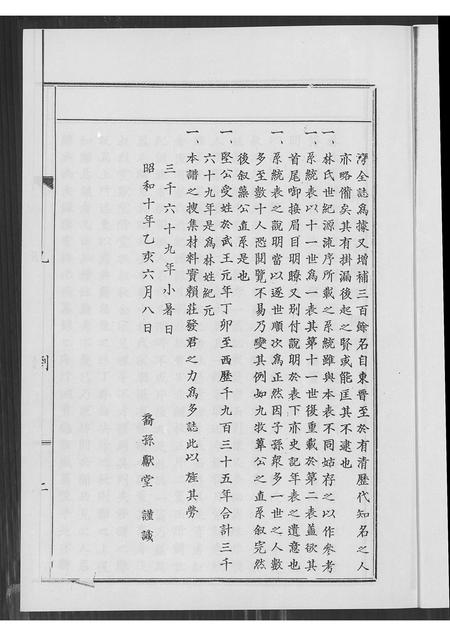 灣全誌爲據又增補三百餘名自東晋至於有清歷代知名之人
亦略備矣其有掛漏後起之賢或能匡其不逮也
一、林氏世紀源流序所載之系統雖與本表不同姑存之以作參考
一、系統表以十一世爲一表其第十一世復重載於第二表蓋欲其
首尾啣接眉目明瞭又別付說明於表下亦史記年表之遺意也
一、系統表之說明當以逐世順次爲正然因子孫衆多一世之人數
多至數十人恐閱覽不易乃變其例如九牧葦公之直系叙完然
後叙藻公直系是也
一、堅公受姓於武王元年丁卯至西歷千九百三十五年合計三千
六十九年是爲林姓紀元
一、本譜之搜集材料賣賴莊發君之力爲多誌此以旌其勞
三千六十九年小暑日
昭和十年乙亥六月八日
裔孫獻堂 謹識